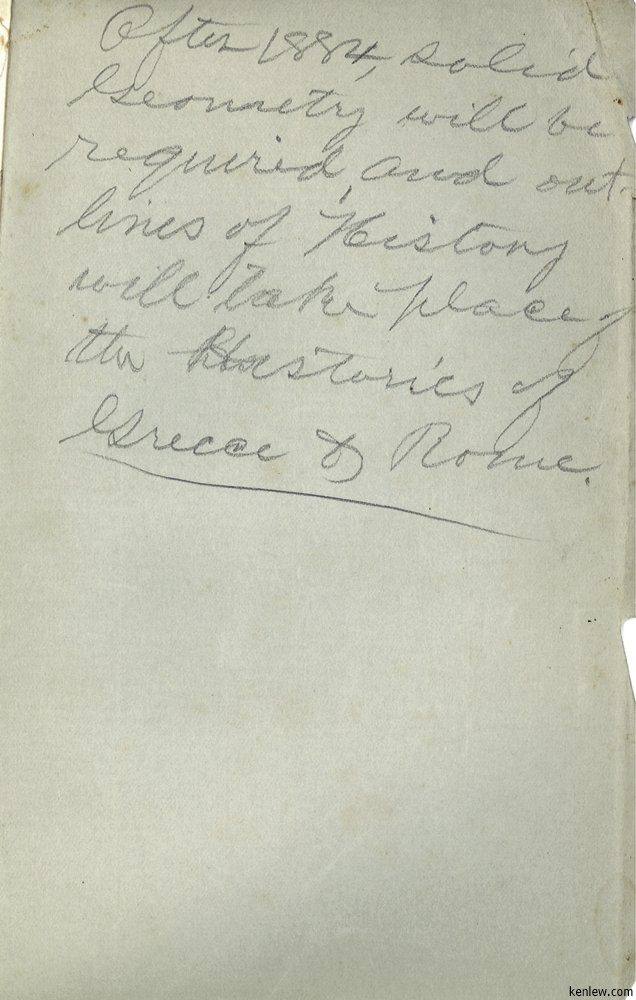 After 1884, solid
Geometry will be
required, and out-
lines of History
will take place of
the Histories of
Greece & Rome.
kenlew.com